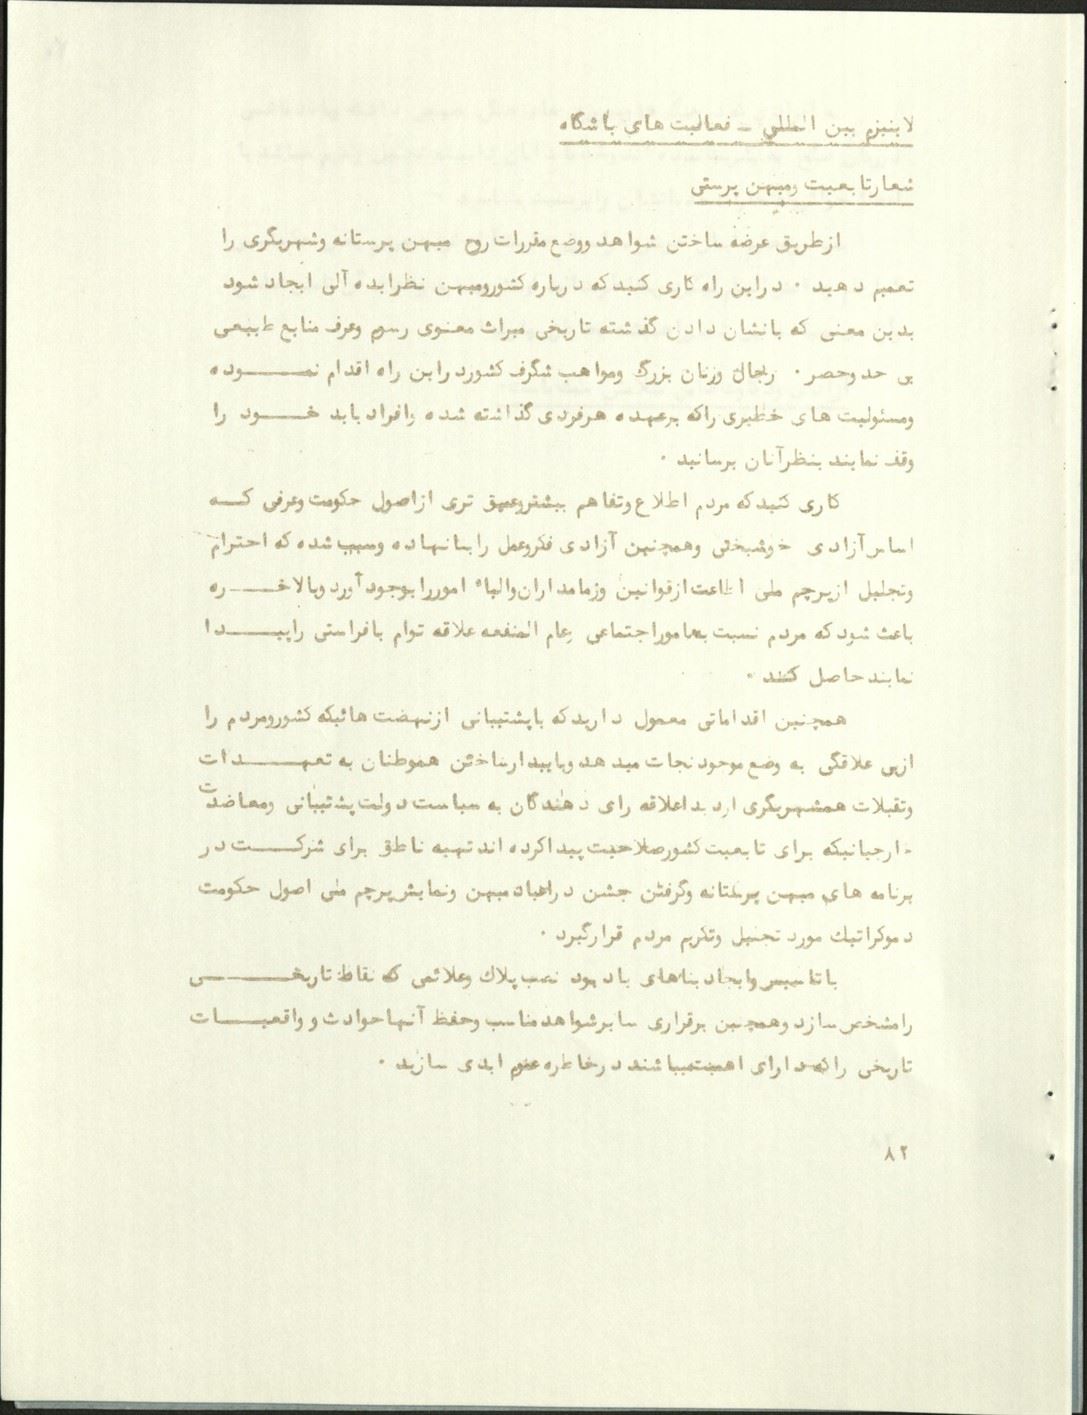 لاینیزم بین المللی - فعالیت های باشگاه
شعارتابعیت ومیهن پرستی
ازطریق عرضه ساختن شواهد ووضع مقررات روح میهن پرستانه وشهریگری را
تعمیم دهید . دراین راه کاری کنید که درباره کشورومیهن نظرایده آلی ایجاد شود
بدین معنی که بانشان دادن گذشته تاریخی میراث معنوی رسوم وعرف منابع طبیعی
بی حد وحصر . رجال وزنان بزرگ ومواهب شگرف کشوردراین راه اقدام نمـــوده
ومسئولیت های خطیری راکه برعهده هرفردی گذاشته شده وافراد باید خـــود را
وقف نمایند بنظرآنان برسانید .
کاری کنید که مردم اطلاع وتفاهم بیشتروعمیق تری ازاصول حکومت وعرفی کـــه
اساس آزادی خوشبختی وهمچنین آزادی فکروعمل رابنانهاده وسبب شده که احترام
وتجلیل ازپرچم ملی اطاعت ازقوانین وزمامداران واولیاء اموررابوجود آورد وبالاخـــره
باعث شود که مردم نسبت به امور اجتماعی وعام المنفعه علاقه توام بافراستی راپیـــدا
نمایند حاصل کنند .
همچنین اقداماتی معمول دارید که باپشتیبانی ازنهضت هائیکه کشورومردم را
ازبی علاقگی به وضع موجود نجات میدهد وبابیدارساختن هموطنان به تعهـــدات
وتقبلات همشهریگری ازدیدعلاقه رای دهندگان به سیاست دولت پشتیبانی ومعاضدت
خارجیانیکه برای تابعیت کشورصلاحیت پیداکرده اند تهیه ناطق برای شرکـــت در
برنامه های میهن پرستانه وگرفتن جشن دراعیاد میهن ونمایش پرچم ملی اصول حکومت
دموکراتیک مورد تجلیل وتکریم مردم قرارگیرد .
باتاسیس وایجاد بناهای یادبود نصب پلاک وعلائمی که نقاط تاریخـــی
رامشخص سازد وهمچنین برقراری سایرشواهد مناسب وحفظ آنها حوادث و واقعیـــات
تاریخی راکه دارای اهمیت میباشند درخاطره عموم ابدی سازید .
۸۲